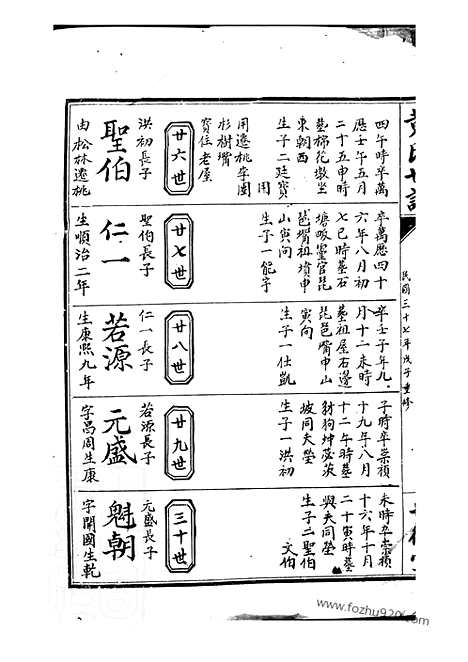 民國三十七年戊子重修
四午時卒萬
歷壬午五月
二十五申時
墓棉花墩坐
東朝西
生子二廷寶
用
用遷桃李園
杉樹灣
寶住老屋
廿六世
洪初長子
聖伯
由松林遷桃
卒萬歷四十
六年八月初
七巳時墓石
塘畈靈官琵
琶嘴祖墳申
山寅向
生子一能字
廿七世
聖伯長子
仁一
生順治二年
辛壬子年九
月十二未時
墓祖屋石邊
琵琶嘴申山
寅向
生子一仕凱
廿八世
仁一長子
若源
生康熙九年
子時卒崇禎
十九年八月
十二午時墓
豺狗坤茂茨
坡同夫塋
生子一洪初
廿九世
若源長子
元盛
字昌周生康
未時卒崇禎
十六年十月
二十寅時墓
與夫同塋
生子二聖伯
文伯
三十世
元盛長子
魁朝
字開國生乾
www.fozhu920.com